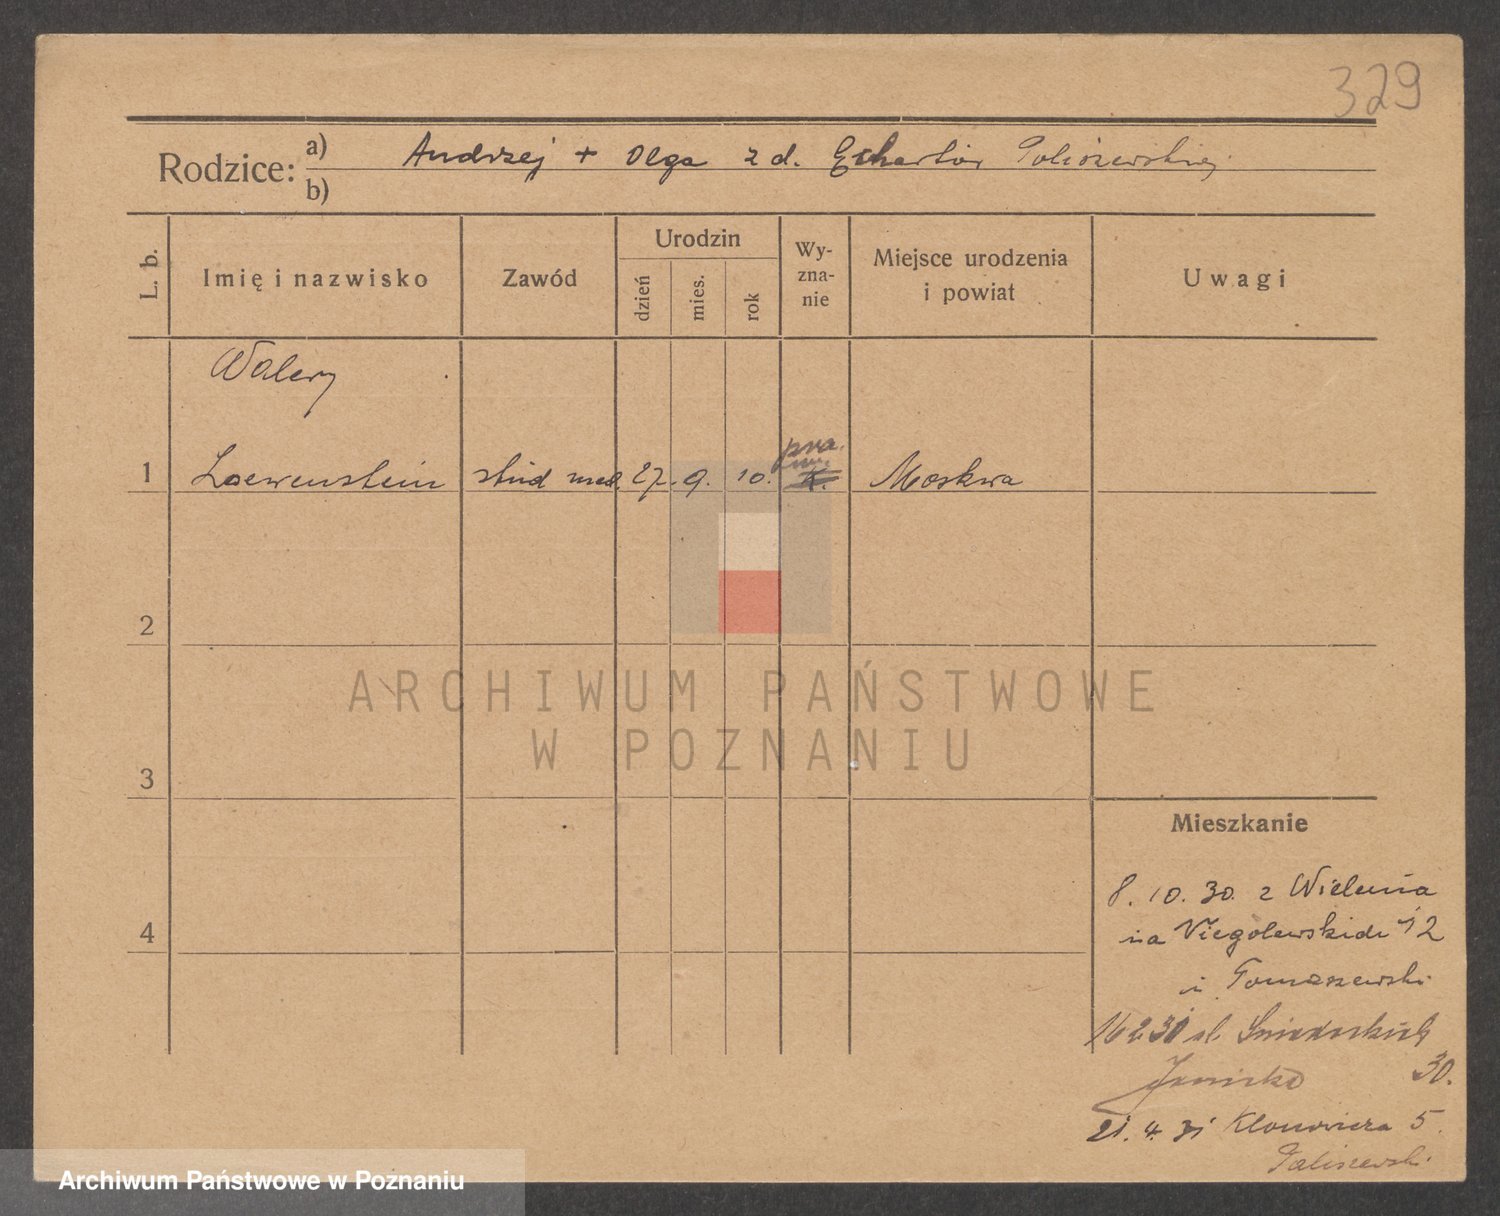 329
Rodzice: a) Andrzej + Olga z d.
b)
L. b.
Imię i nazwisko
Zawód
Urodzin
dzień
mies.
rok
Wy-
zna-
nie
Miejsce urodzenia
i powiat
Uwagi
Walery
1 Loewenstein stud med. 27. 9. 10. Moskwa
2
3
4
Mieszkanie
8. 10. 30. z Wielunia
na 12
u Tomaszewski
16 2 31 ul. Śniadeckich
30.
21. 4. 31 Klonowicza 5.
ARCHIWUM PAŃSTWOWE
W POZNANIU
Archiwum Państwowe w Poznaniu